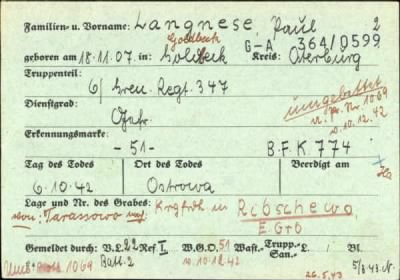 Familien- u. Vorname: Langnese, Paul 2
Goldbeck G-A 364/0599
geboren am 18.11.07. in: Goldbeck Kreis: Osterburg
Truppenteil:
6/ Gren. Regt. 347
Dienstgrad: umgebettet
Ogfr. u. Pr. Nr. 1069
Erkennungsmarke: v. 10.12.42
-51- B.F.K 774
Tag des Todes Ort des Todes Beerdigt am
6.10.42 Ostrowa
Lage und Nr. des Grabes: Krgfrhf. in Ribschewo,
von: Tarassowo nach E.Grb
Gemeldet durch: V.L. 22 Ref I W.G.O. 51 Wast.- Trupp.- San.- L. / Bl.
1069 Batl. 2 v. 10.12.42 26.5.43 5/8.43